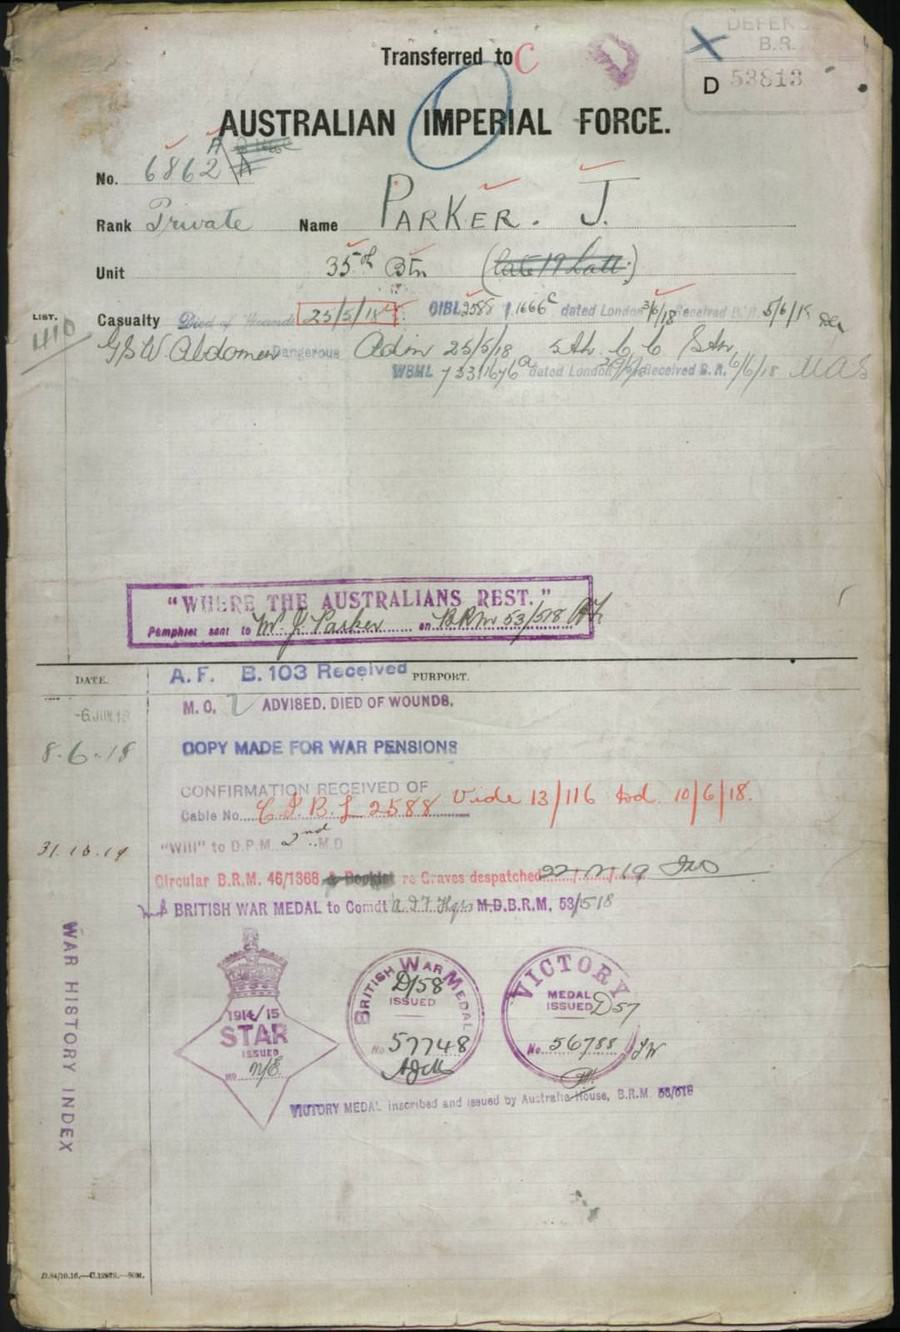 Transferred to C
DEFEN
B.R.
D 53813
AUSTRALIAN IMPERIAL FORCE.
No. 6862 A
Rank Private Name PARKER. J.
Unit 35th Btn (late 19 Batt.)
LIST. 410
Casualty Died of Wounds 25/5/18 CIBL 2588 1666c dated London 3/6/18 Received B.R. 5/6/18
GSW Abdomen Dangerous Adm 25/5/18 5th C C Stn
WBHL 733/1676a dated London Received B.R. 6/6/18
"WHERE THE AUSTRALIANS REST."
Pamphlet sent to W. J. Parker on B.R.M 53/518
DATE. A.F. B.103 Received PURPORT.
-6 JUN 18 M.O. 2 ADVISED. DIED OF WOUNDS.
8.6.18 COPY MADE FOR WAR PENSIONS
CONFIRMATION RECEIVED OF
Cable No. C.I.B.L 2588 Vide 13/116 dd. 10/6/18.
31.10.19 "Will" to D.P.M. 2nd M.D
Circular B.R.M. 46/1368 & Booklet re Graves despatched 22
BRITISH WAR MEDAL to Comdt A.I.F. Hqrs M.D.B.R.M. 53/518
WAR HISTORY INDEX
1914/15
STAR
ISSUED
NO n/E
BRITISH WAR MEDAL
D/58
ISSUED
No 57748
VICTORY
MEDAL
ISSUED D57
No. 56788
VICTORY MEDAL inscribed and issued by Australia House, B.R.M. 53/518
D.84/10.16.—C.12878.—50M.